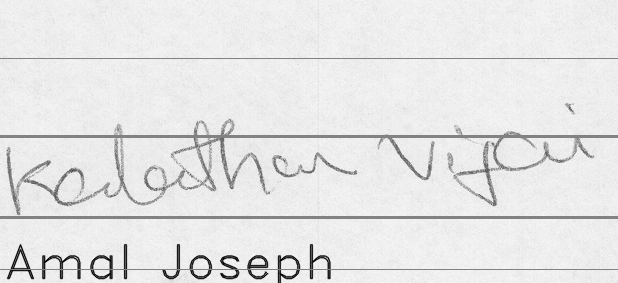 Kadaithan Vijai
Amal Joseph